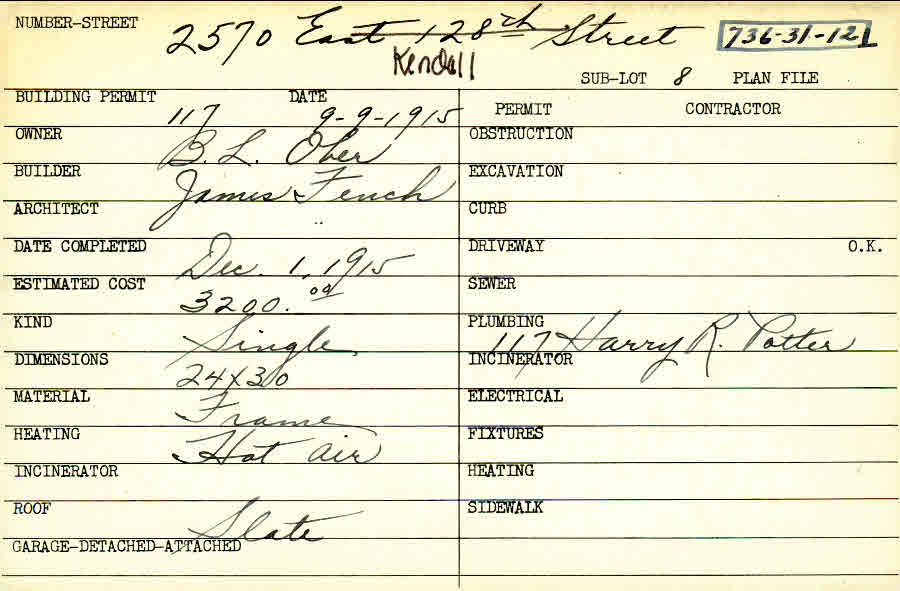 NUMBER-STREET 2570 East 128th Street 736-31-121
Kendall
SUB-LOT 8 PLAN FILE
BUILDING PERMIT 117 DATE 9-9-1915
PERMIT CONTRACTOR
OWNER B. L. Ober
OBSTRUCTION
BUILDER James Fench
EXCAVATION
ARCHITECT
CURB
DATE COMPLETED Dec. 1, 1915
DRIVEWAY O.K.
ESTIMATED COST 3200.00
SEWER
KIND Single
PLUMBING 117 Harry R. Potter
DIMENSIONS 24X30
INCINERATOR
MATERIAL Frame
ELECTRICAL
HEATING Hot air
FIXTURES
INCINERATOR
HEATING
ROOF Slate
SIDEWALK
GARAGE-DETACHED-ATTACHED